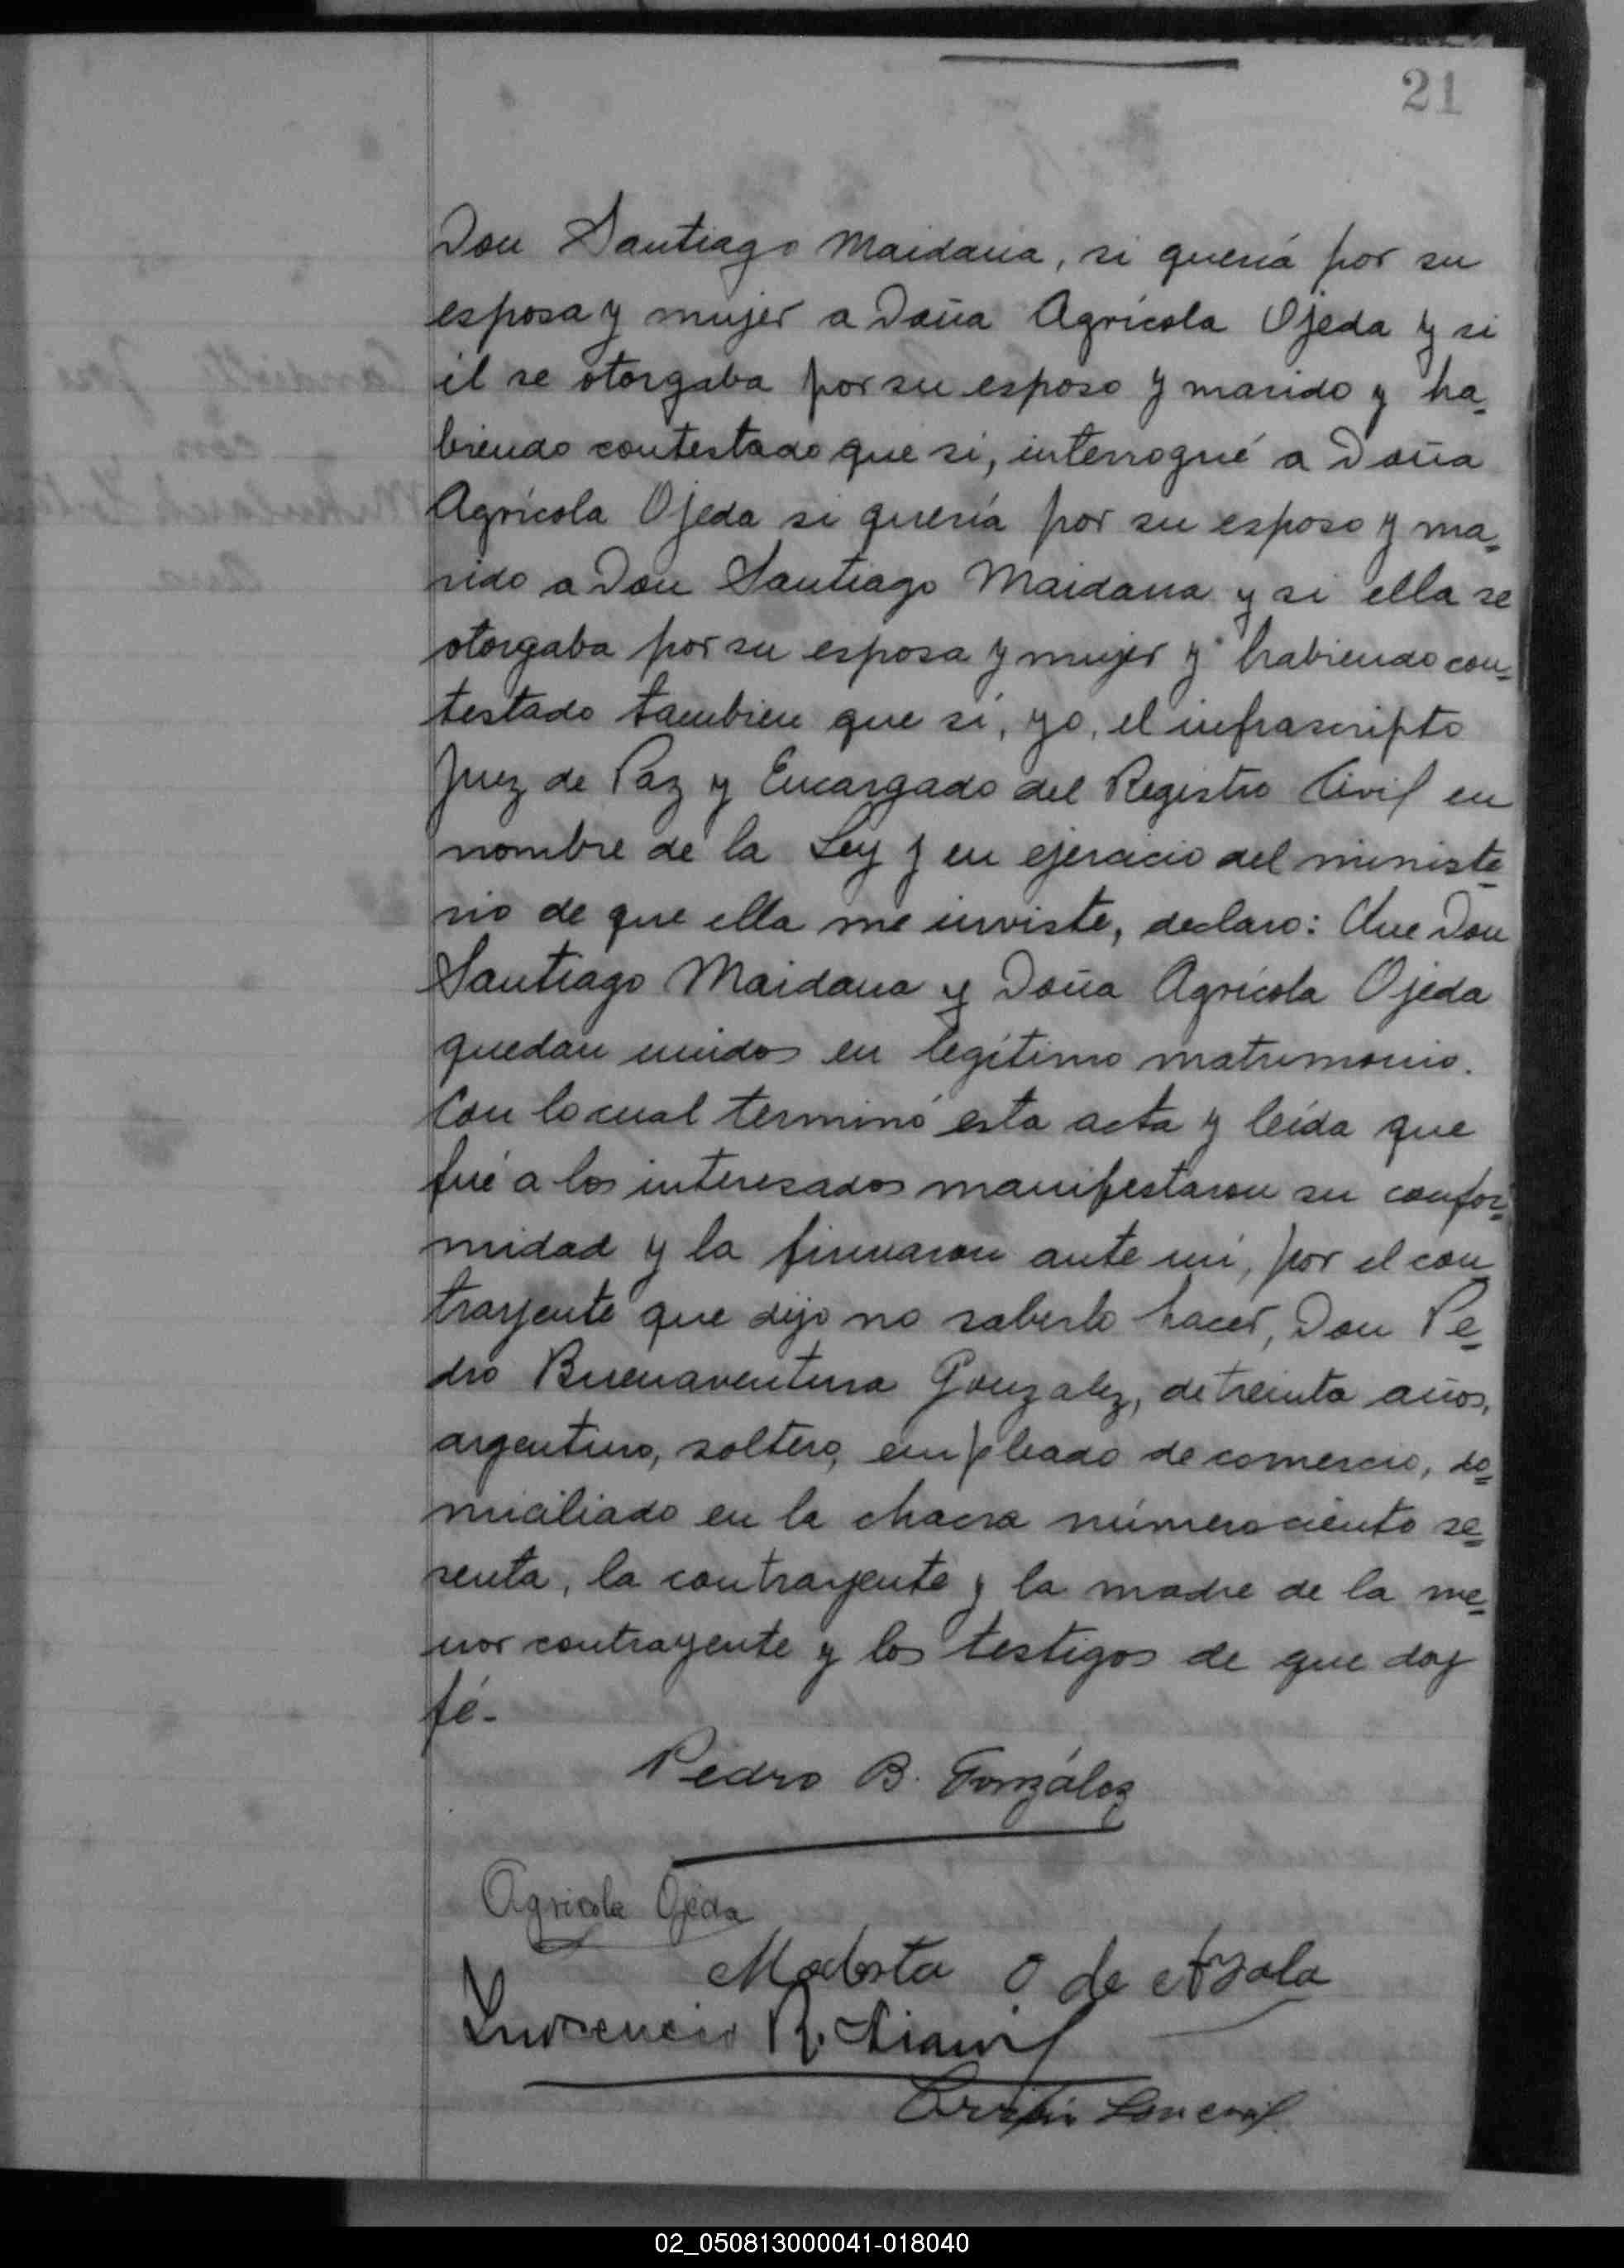 21
Don Santiago Maidana, si quería por su
esposa y mujer a Doña Agrícola Ojeda y si
él se otorgaba por su esposo y marido y ha=
biendo contestado que si, interrogué a Doña
Agrícola Ojeda si quería por su esposo y ma=
rido a Don Santiago Maidana y si ella se
otorgaba por su esposa y mujer y habiendo con=
testado tambien que sí, yo, el infrascripto
Juez de Paz y Encargado del Registro Civil en
nombre de la Ley y en ejercicio del ministe=
rio de que ella me inviste, declaro: Que Don
Santiago Maidana y Doña Agrícola Ojeda
quedan unidos en legítimo matrimonio.
Con lo cual terminó esta acta y leída que
fué a los interesados manifestaron su confor=
midad y la firmaron ante mi, por el con
trayente que dijo no saberlo hacer, Don Pe=
dro Buenaventura Gonzalez, de treinta años,
argentino, soltero, empleado de comercio, do=
miciliado en la chacra número ciento se=
senta, la contrayente y la madre de la me=
nor contrayente y los testigos de que doy
fé.-
Pedro B. González
Agricola Ojeda
Modesta O de Ayala
R.
02_050813000041-018040